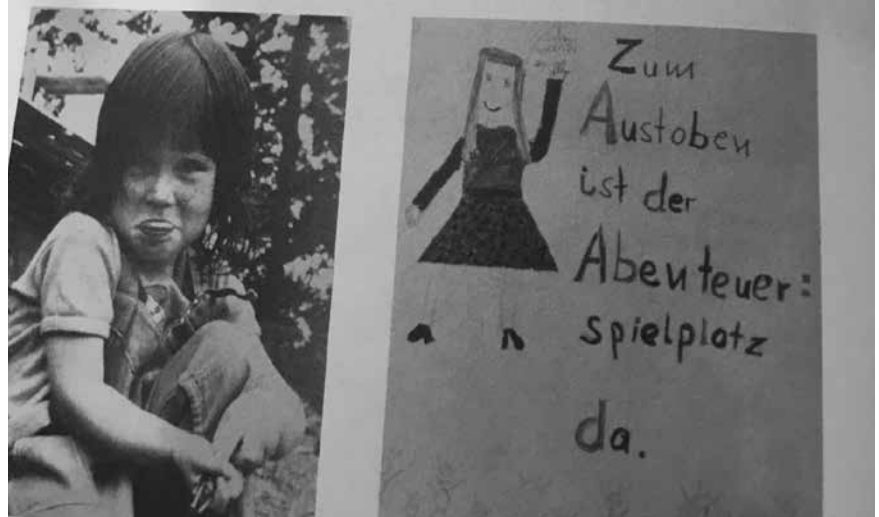 Zum
Austoben
ist der
Abenteuer:
spielplatz
da.